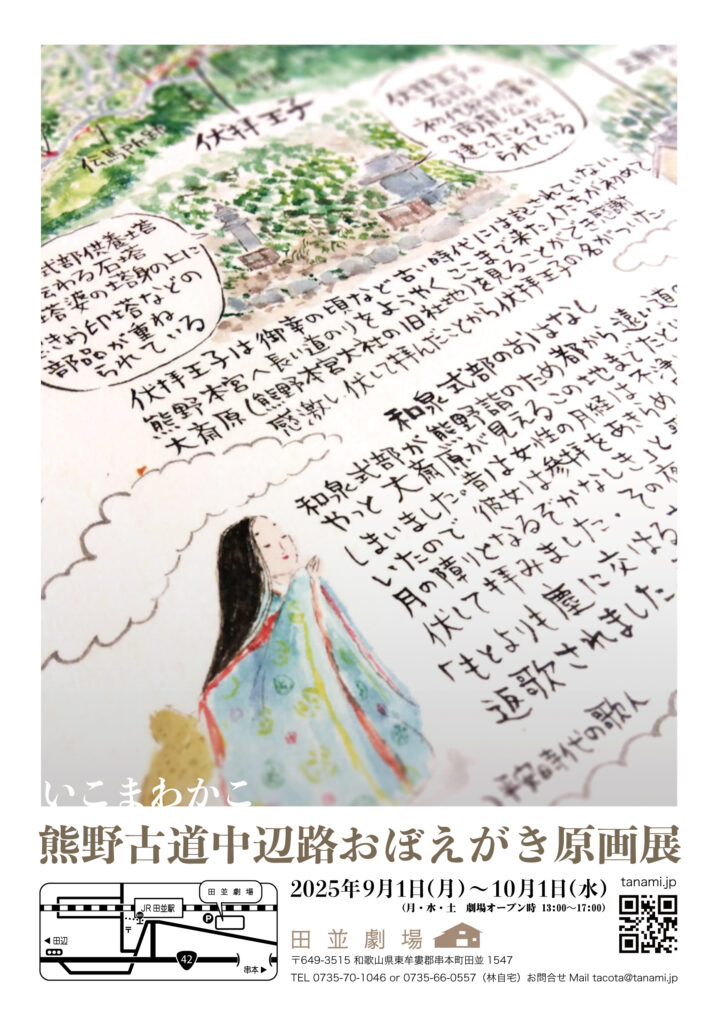 伏拝王子
伝馬所跡
伏拝王子の
石祠
初代紀州藩主
の頼宣公が
建てたと伝え
られている
式部供養塔
伝わる石塔
塔婆の塔身の上に
きょう印塔などの
部品が重ね
られている
伏拝王子は御幸の頃など古い時代には記されていない
熊野本宮へ長い道のりをようやくここまで来た人たちが初めて
大斎原(熊野本宮大社の旧社地)を見ることができ感謝
感激し伏して拝んだことから伏拝王子の名がついた
和泉式部のおはなし
和泉式部が熊野詣のため都から遠い道の
やっと大斎原が見えるこの地までたど
しまいました。昔は女性の月経は不浄
いたので 彼女は参拝をあきらめ
月の障りとなるぞかなしき」と
伏して拝みました。その夜
「もとよりも塵に交はる
返歌されました
平安時代の歌人
いこまわかこ
熊野古道中辺路おぼえがき原画展
2025年9月1日(月)〜10月1日(水)
(月・水・土 劇場オープン時 13:00〜17:00)
tanami.jp
田並劇場
〒649-3515 和歌山県東牟婁郡串本町田並 1547
TEL 0735-70-1046 or 0735-66-0557（林自宅）お問合せ Mail tacota@tanami.jp
田並劇場
JR 田並駅
P
〒
◀田辺
42
串本▶